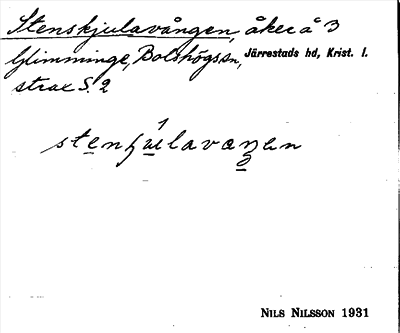 Stenskjulavången, åker å 3
Glimminge, Bolshögs sn, Järrestads hd, Krist. l.
strax S. 2
NILS NILSSON 1931